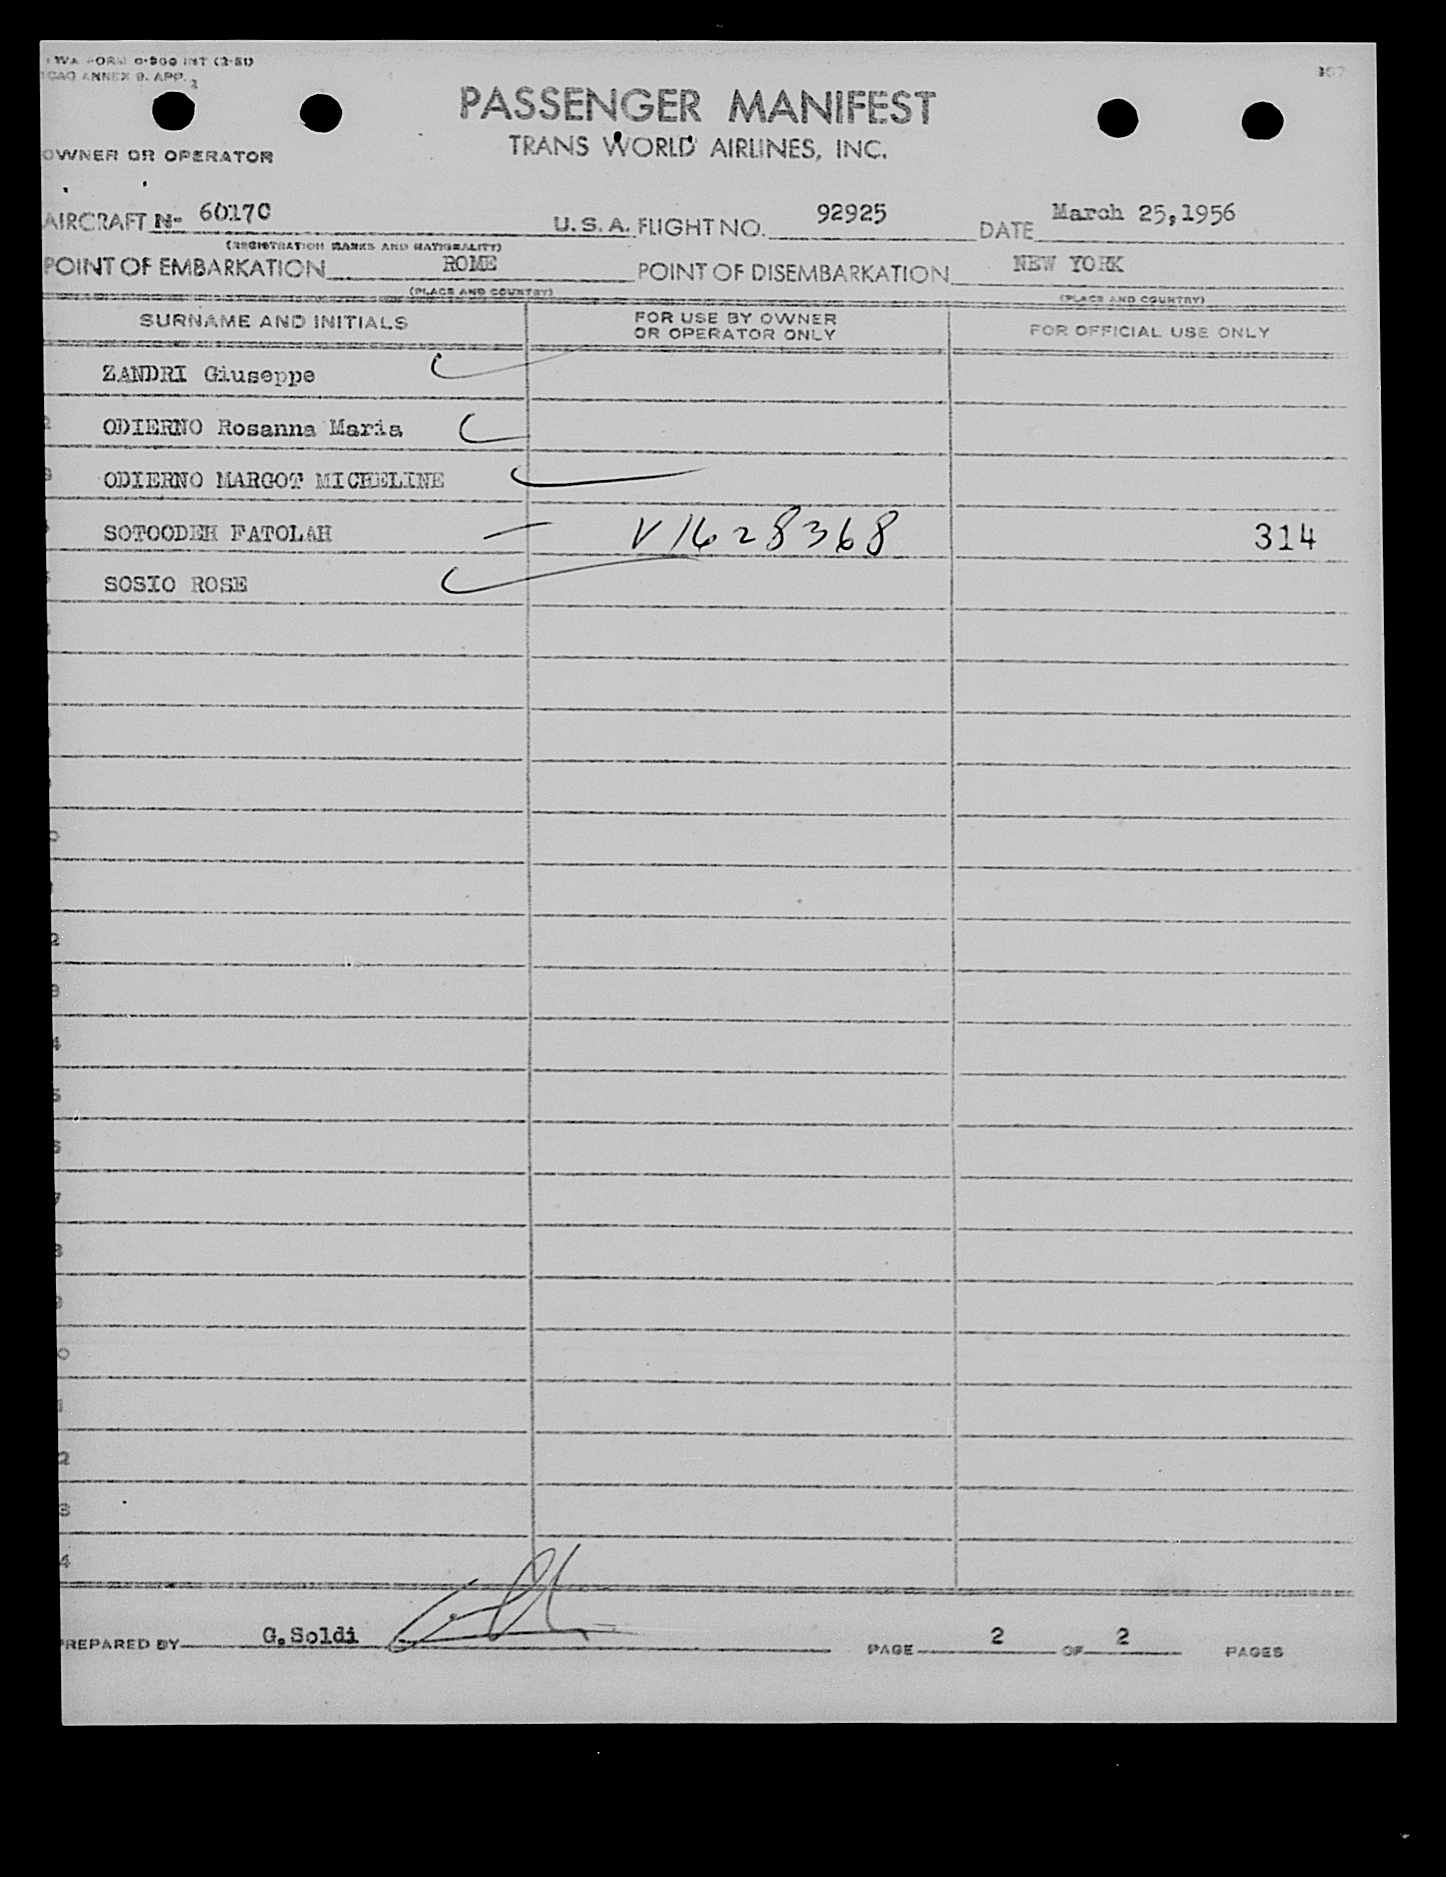 TWA FORM O-900 INT (2-51)
ICAO ANNEX 9. APP. 2
PASSENGER MANIFEST
TRANS WORLD AIRLINES, INC.
OWNER OR OPERATOR
AIRCRAFT N- 6017C U. S. A. FLIGHT NO. 92925 DATE March 25,1956
(REGISTRATION MARKS AND NATIONALITY)
POINT OF EMBARKATION ROME POINT OF DISEMBARKATION NEW YORK
(PLACE AND COUNTRY) (PLACE AND COUNTRY)
SURNAME AND INITIALS FOR USE BY OWNER OR OPERATOR ONLY FOR OFFICIAL USE ONLY
ZANDRI Giuseppe
2 ODIERNO Rosanna Maria
3 ODIERNO MARGOT MICHELINE
SOTOODEH FATOLAH V1628368 314
SOSIO ROSE
0
2
3
4
5
6
7
8
9
0
1
2
3
4
PREPARED BY G.Soldi PAGE 2 OF 2 PAGES